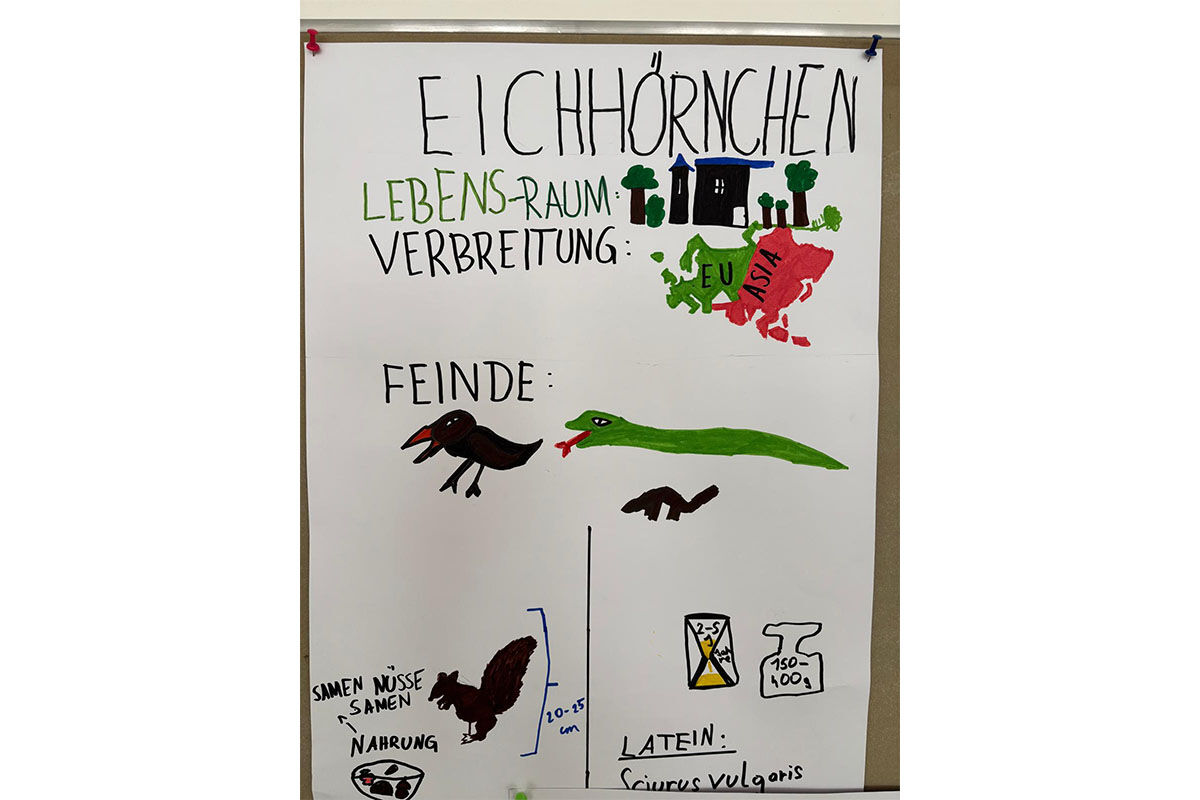 EICHHÖRNCHEN
LEBENS-RAUM:
VERBREITUNG:
EU ASIA
FEINDE:
2-5
Jahre
150-
400g
SAMEN NÜSSE
SAMEN
20-25
cm
NAHRUNG
LATEIN:
Sciurus vulgaris